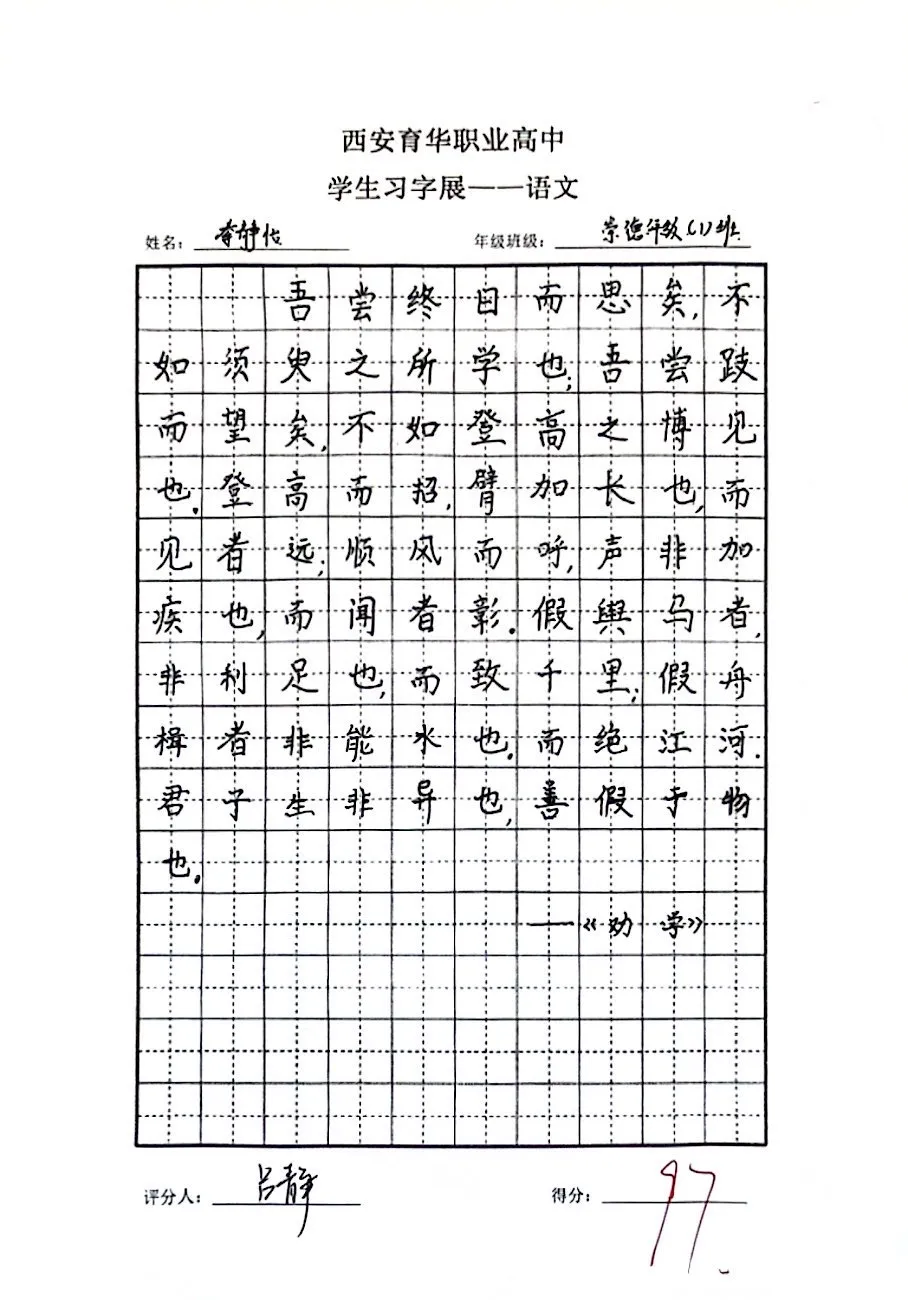 西安育华职业高中
学生习字展——语文
姓名： 年级班级：崇德年级(1)班
吾尝终日而思矣,不
如须臾之所学也;吾尝跂
而望矣,不如登高之博见
也.登高而招,臂加长也,而
见者远;顺风而呼,声非加
疾也,而闻者彰.假舆马者,
非利足也,而致千里;假舟
楫者非能水也.而绝江河.
君子生非异也,善假于物
也.
——《劝学》
评分人：吕静 得分：97